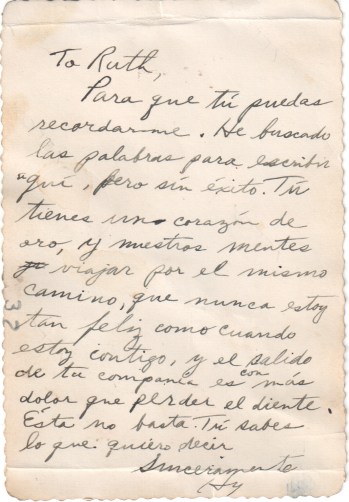 To Ruth,
Para que tú puedas
recordarme. He buscado
las palabras para escribir
"quí, pero sin éxito. Tú
tienes un corazón de
oro, y nuestros mentes
viajar por el mismo
camino, que nunca estoy
tan feliz como cuando
estoy contigo, y el salido
de tu compania es con más
dolor que perder el diente.
Ésta no basta Tú sabes
lo que quiero decir
Sinceramente